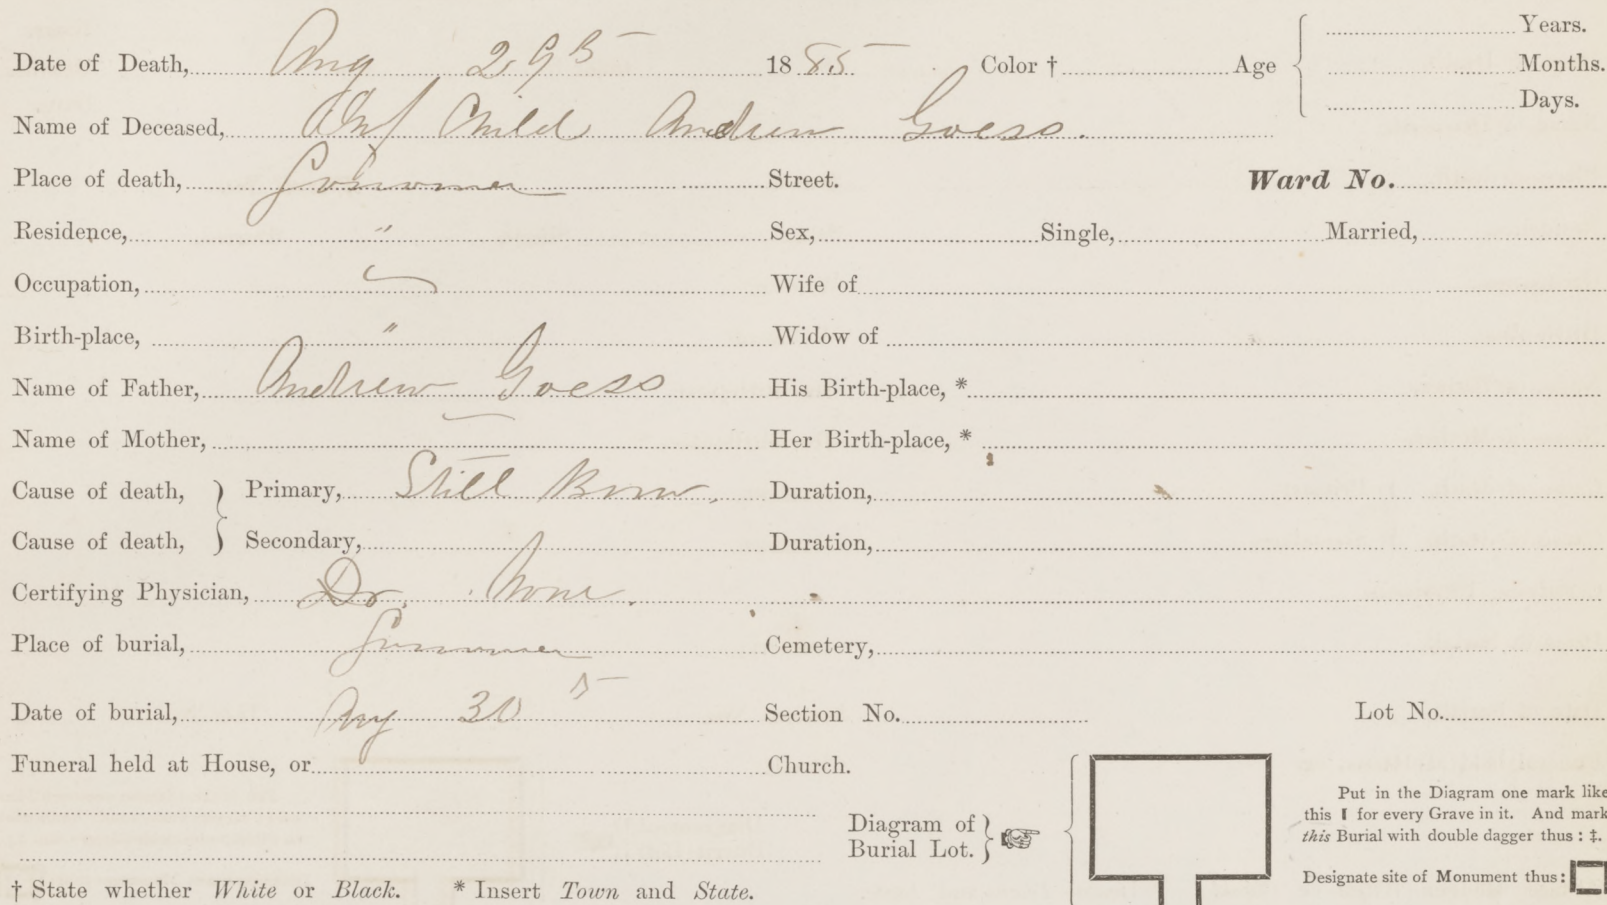 Date of Death, Aug 29 1885 Color † Age Years.
Months.
Days.
Name of Deceased, Inf Child Andrew Goess.
Place of death, Street. Ward No.
Residence, " Sex, Single, Married,
Occupation, Wife of
Birth-place, " Widow of
Name of Father, Andrew Goess His Birth-place, *
Name of Mother, Her Birth-place, *
Cause of death, Primary, Still Born. Duration,
Cause of death, Secondary, Duration,
Certifying Physician, Dr. None.
Place of burial, Cemetery,
Date of burial, Aug 30 Section No. Lot No.
Funeral held at House, or Church.
Diagram of
Burial Lot.
Put in the Diagram one mark like
this for every Grave in it. And mark
this Burial with double dagger thus : ‡.
Designate site of Monument thus :
† State whether White or Black. * Insert Town and State.